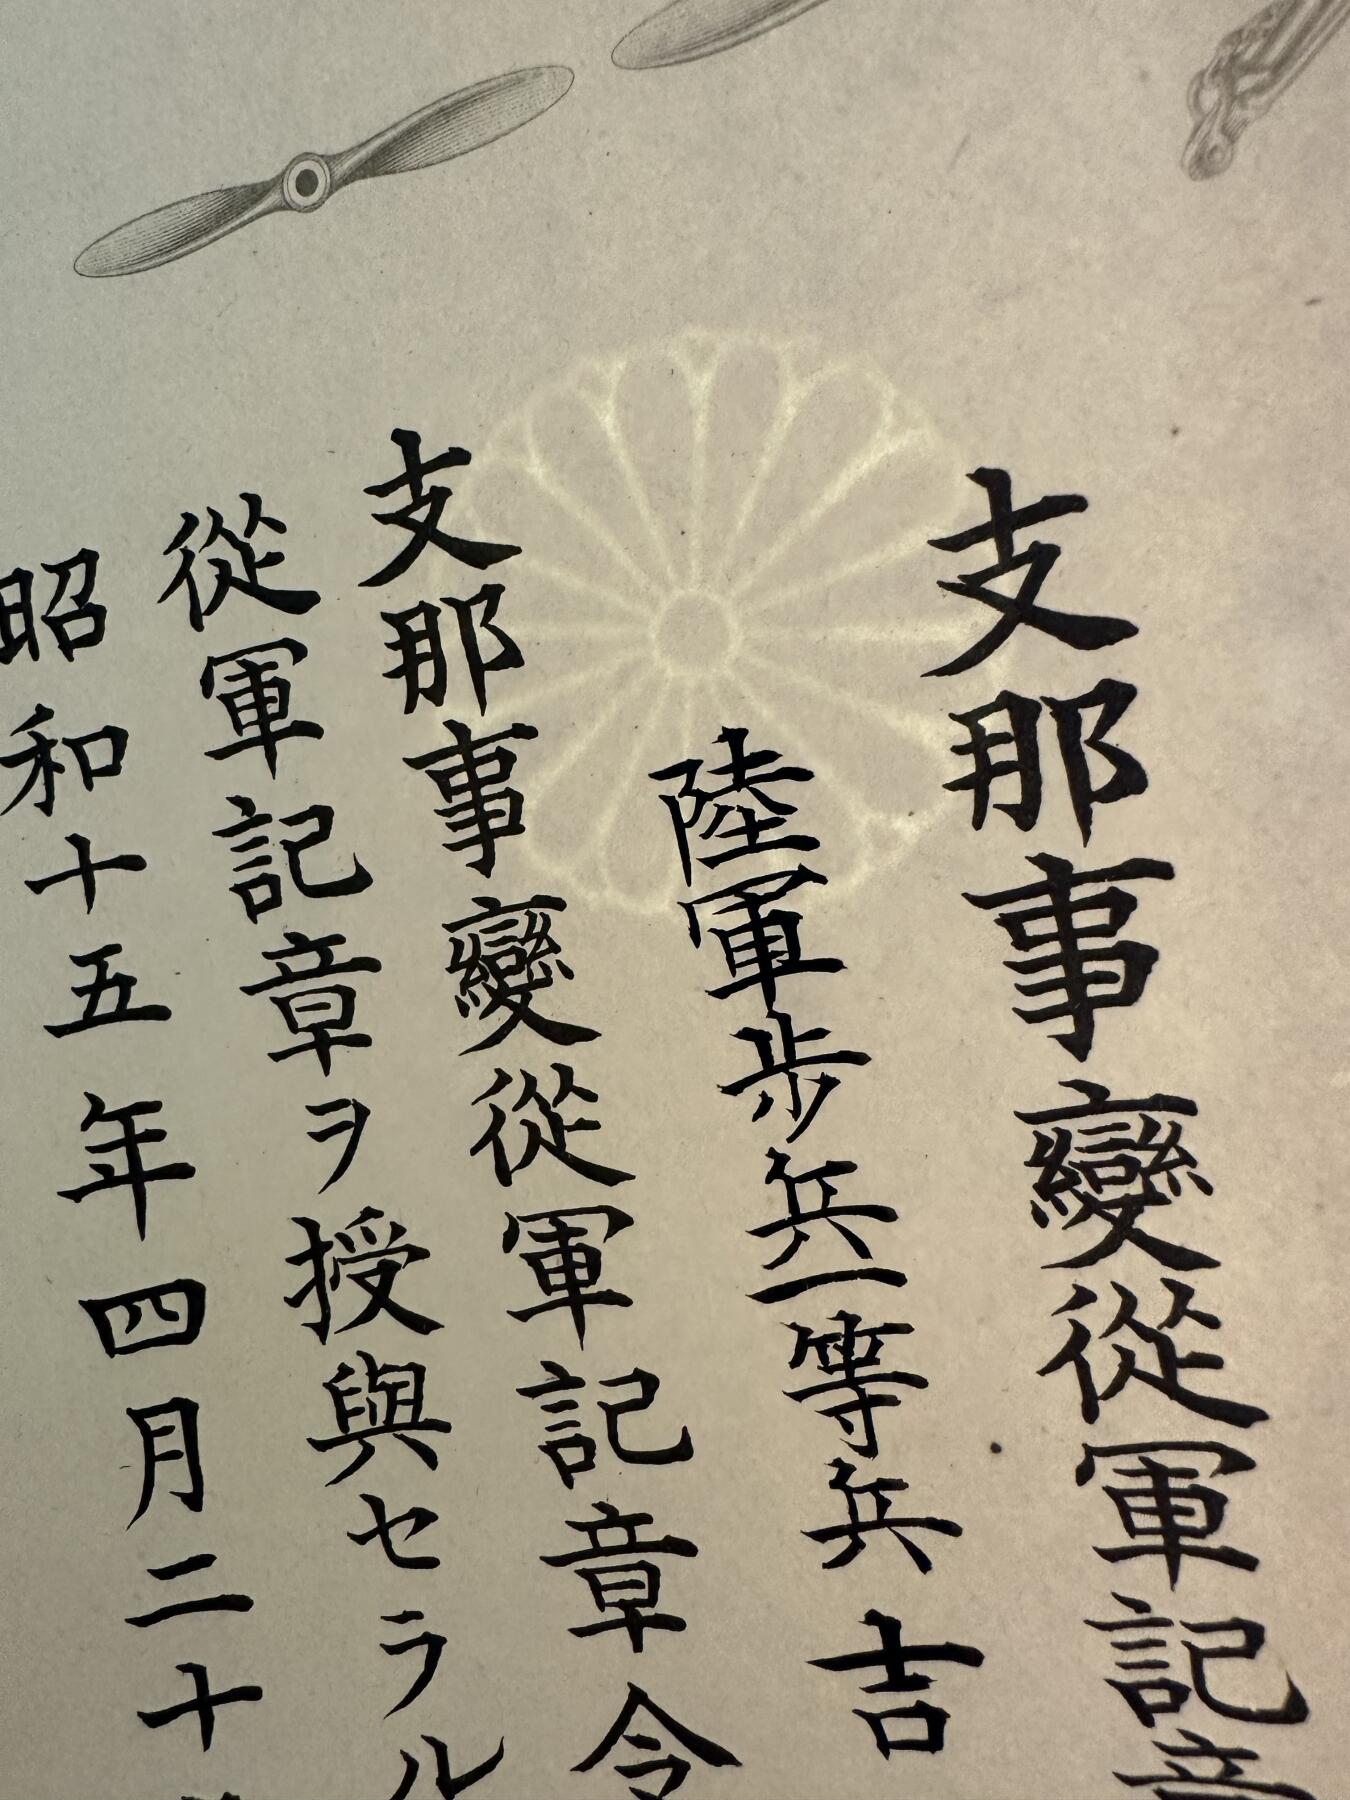 支那事變從軍記章
陸軍步兵一等兵 吉
支那事變從軍記章令
從軍記章ヲ授與セラル
昭和十五年四月二十